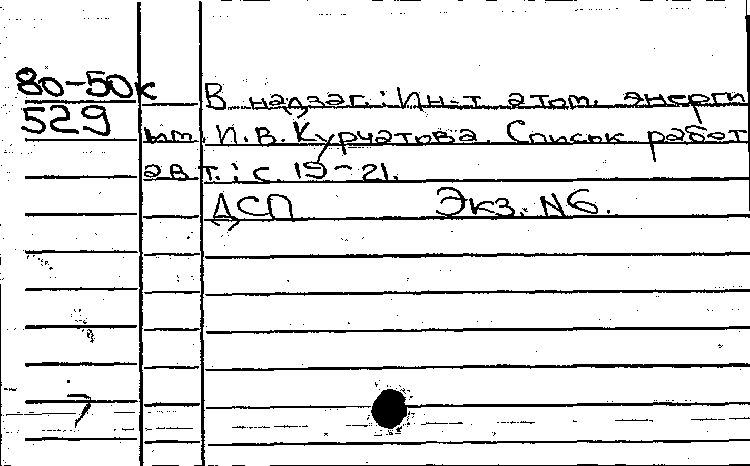 80-50к
529
В надзаг.: Ин-т атом. энерги
им. И.В. Курчатова. Список работ
авт.: с. 19-21.
ДСП Экз. N6.